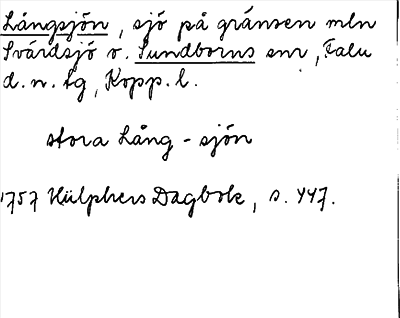 Långsjön, sjö på gränsen mln
Svärdsjö o. Sundborns snr, Falu
d. n. tg, Kopp. l.
stora Lång - sjön
1757 Hülphers Dagbok, s. 447.